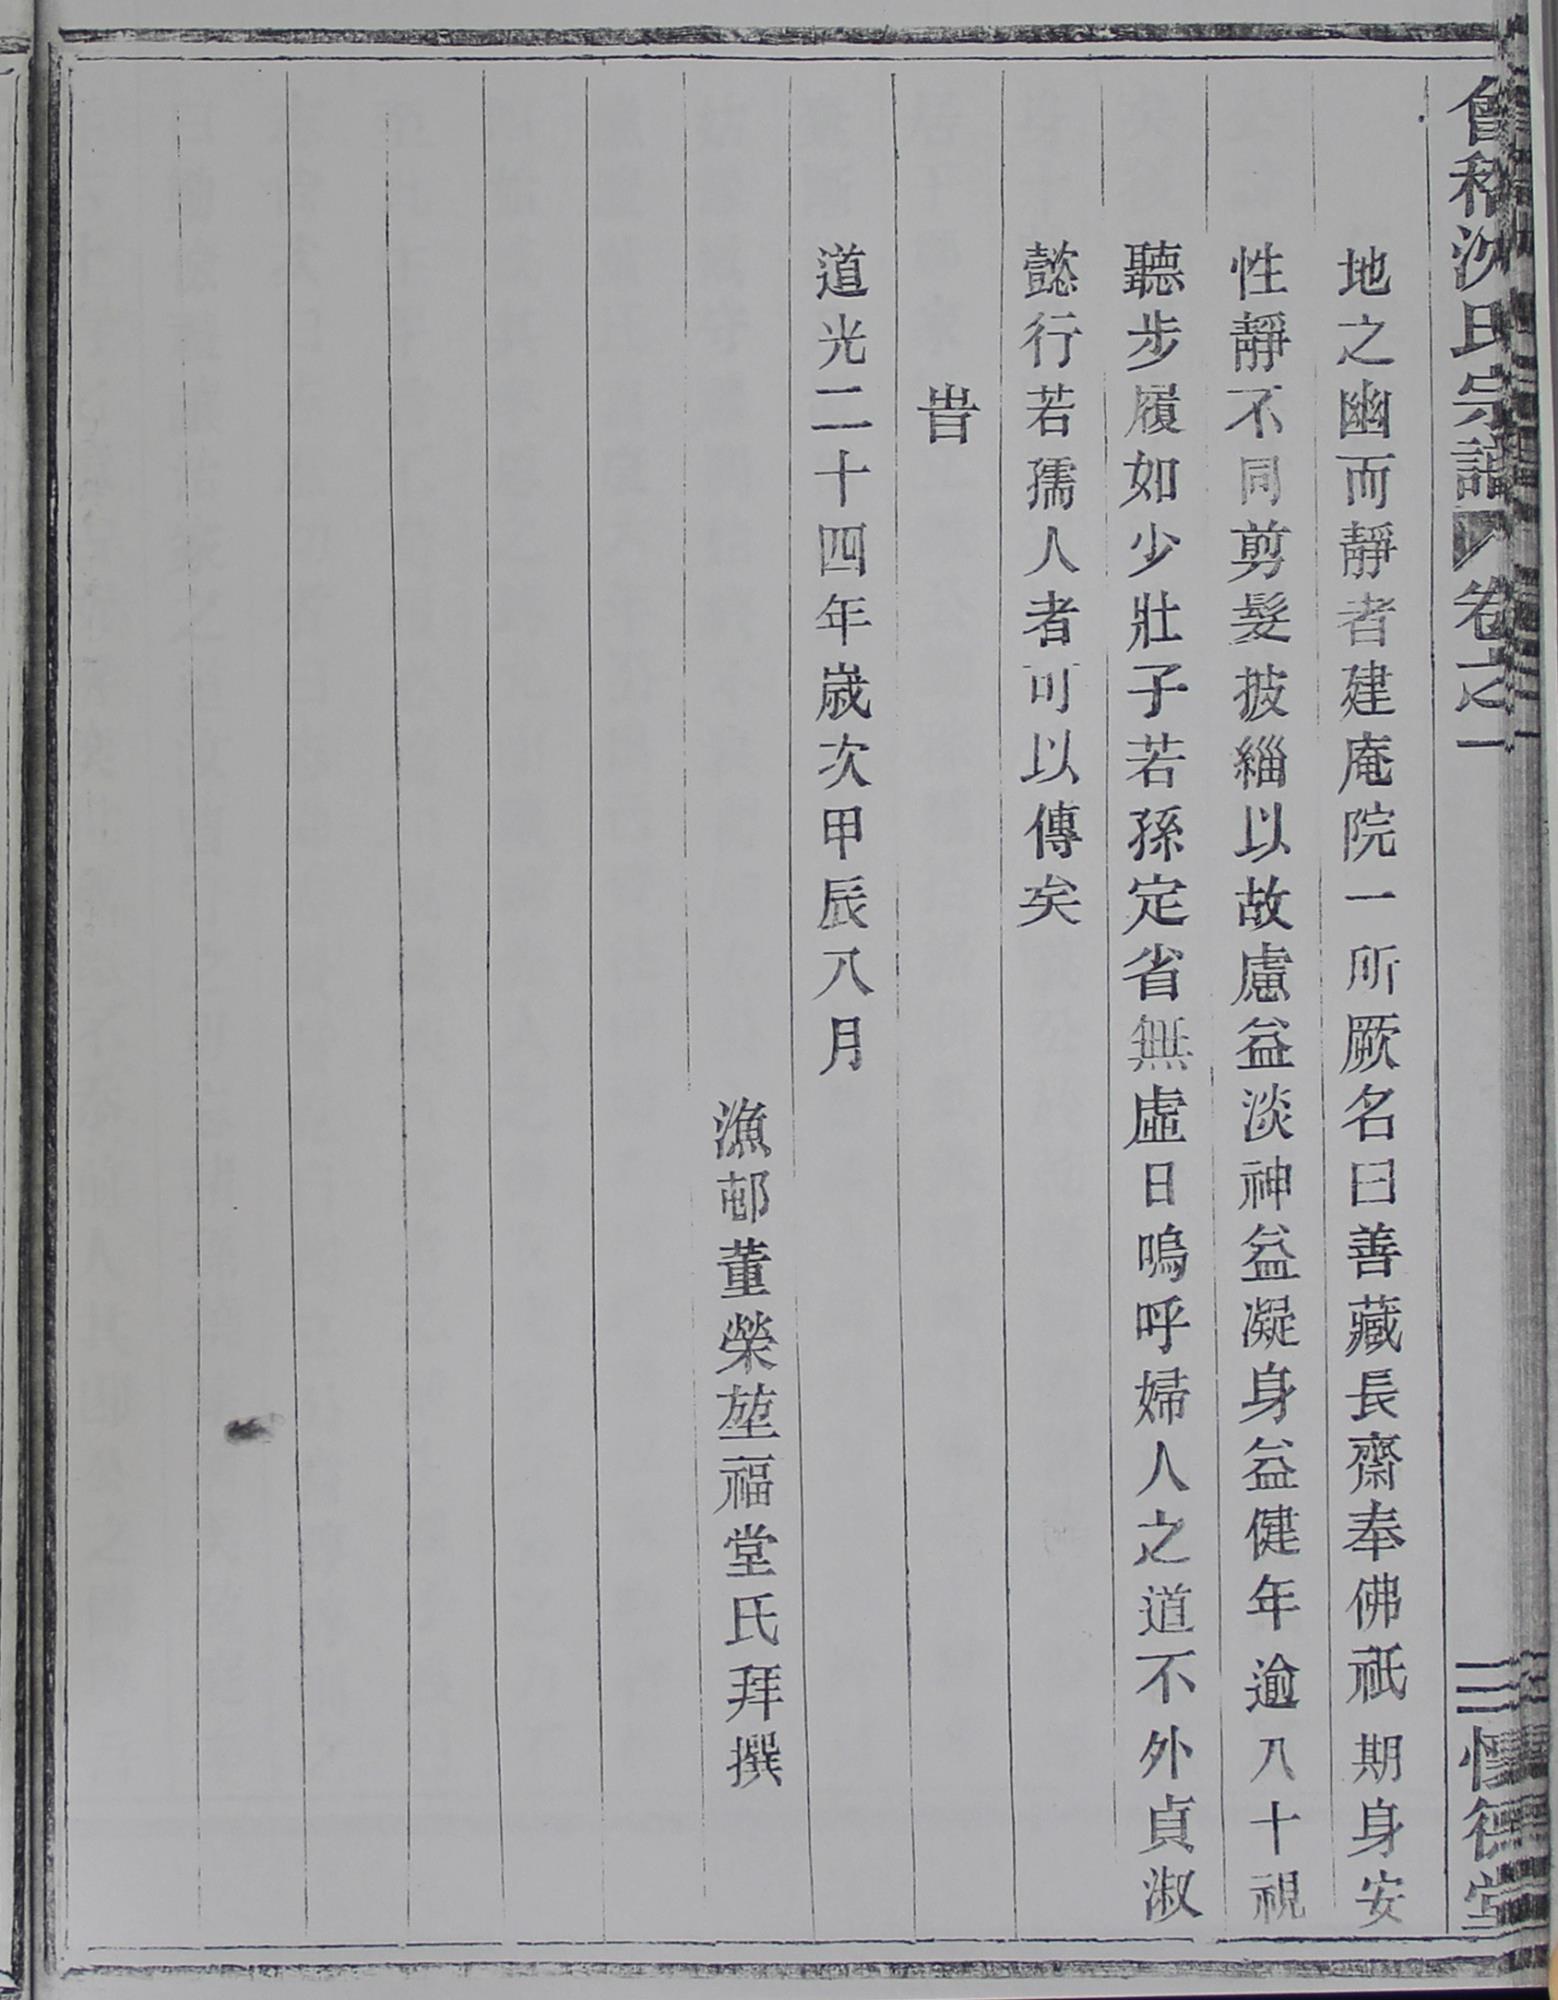 會稽沈氏宗譜 卷之一 三 惇德堂
地之幽而靜者建庵院一所厥名曰善藏長齋奉佛祇期身安
性靜不同剪髮披緇以故慮益淡神益凝身益健年逾八十視
聽步履如少壯子若孫定省無虛日嗚呼婦人之道不外貞淑
懿行若孺人者可以傳矣
旹
道光二十四年歲次甲辰八月
漁邨董榮堃福堂氏拜撰